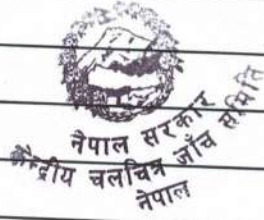 नेपाल सरकार
केन्द्रीय चलचित्र जाँच समिति
नेपाल